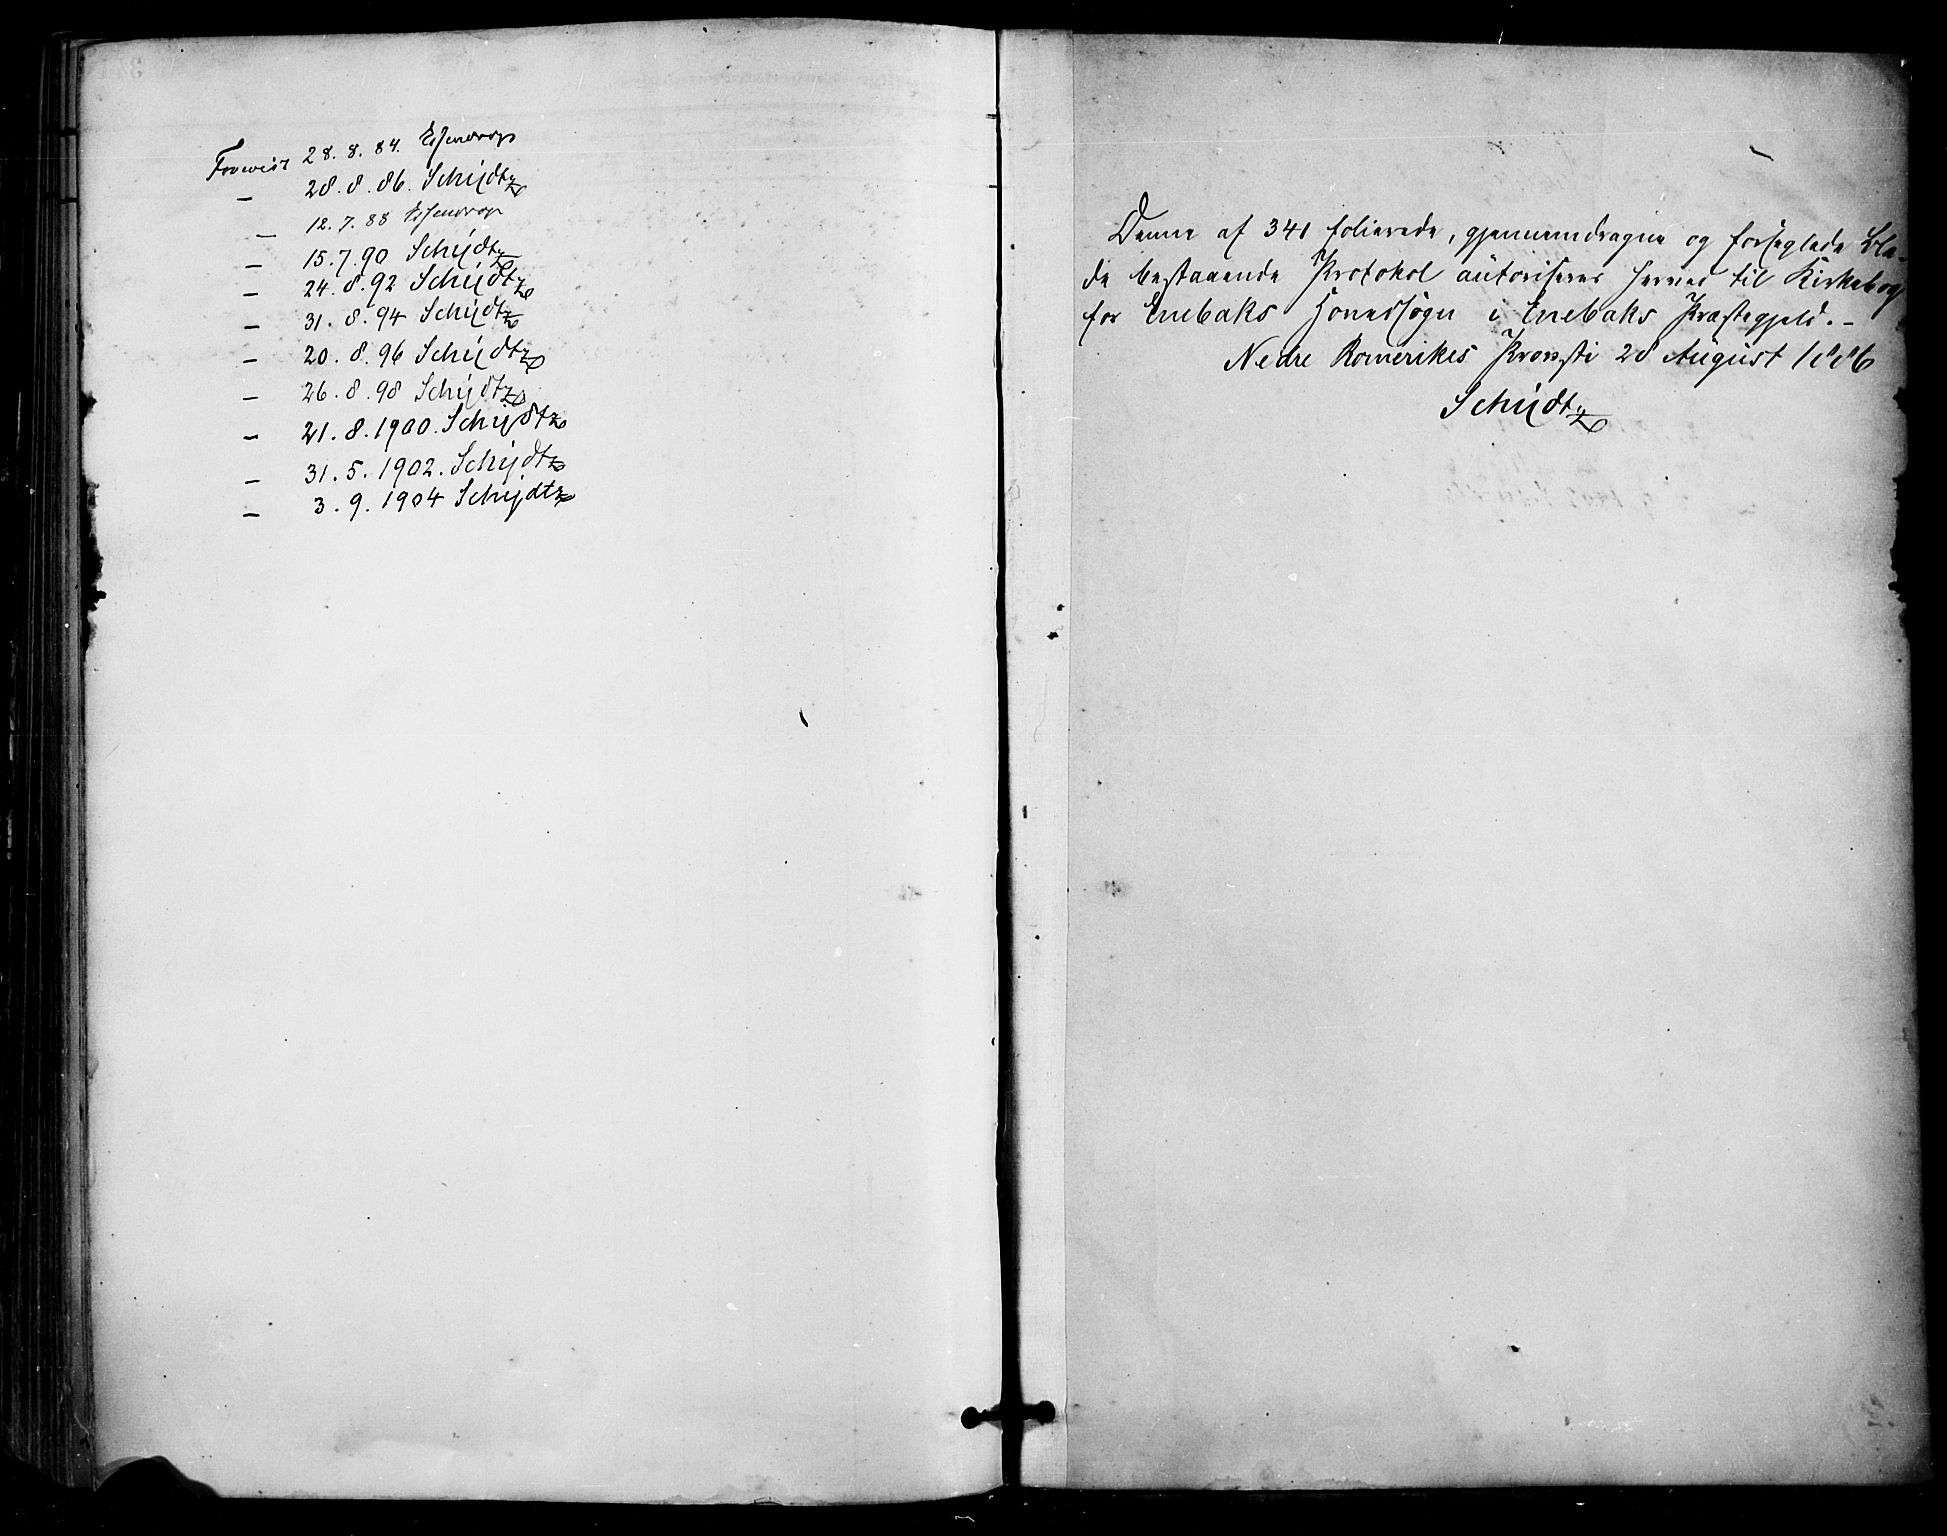 Forevist 28.8.84. Essendrop
— 28.8.86. Schijdtz
— 12.7.88 Essendrop
— 15.7.90 Schijdtz
— 24.8.92 Schijdtz
— 31.8.94 Schijdtz
— 20.8.96 Schijdtz
— 26.8.98 Schijdtz
— 21.8.1900. Schijdtz
— 31.5.1902. Schijdtz
— 3.9.1904 Schijdtz
Denne af 341 folierede, gjennemdragne og forseglede Bla-
de bestaaende Protokol autoriseres herved til Kirkebog
for Enebaks Hovedsogn i Enebaks Præstegjeld. –
Nedre Romerikes Provsti 28 August 1886
Schijdtz